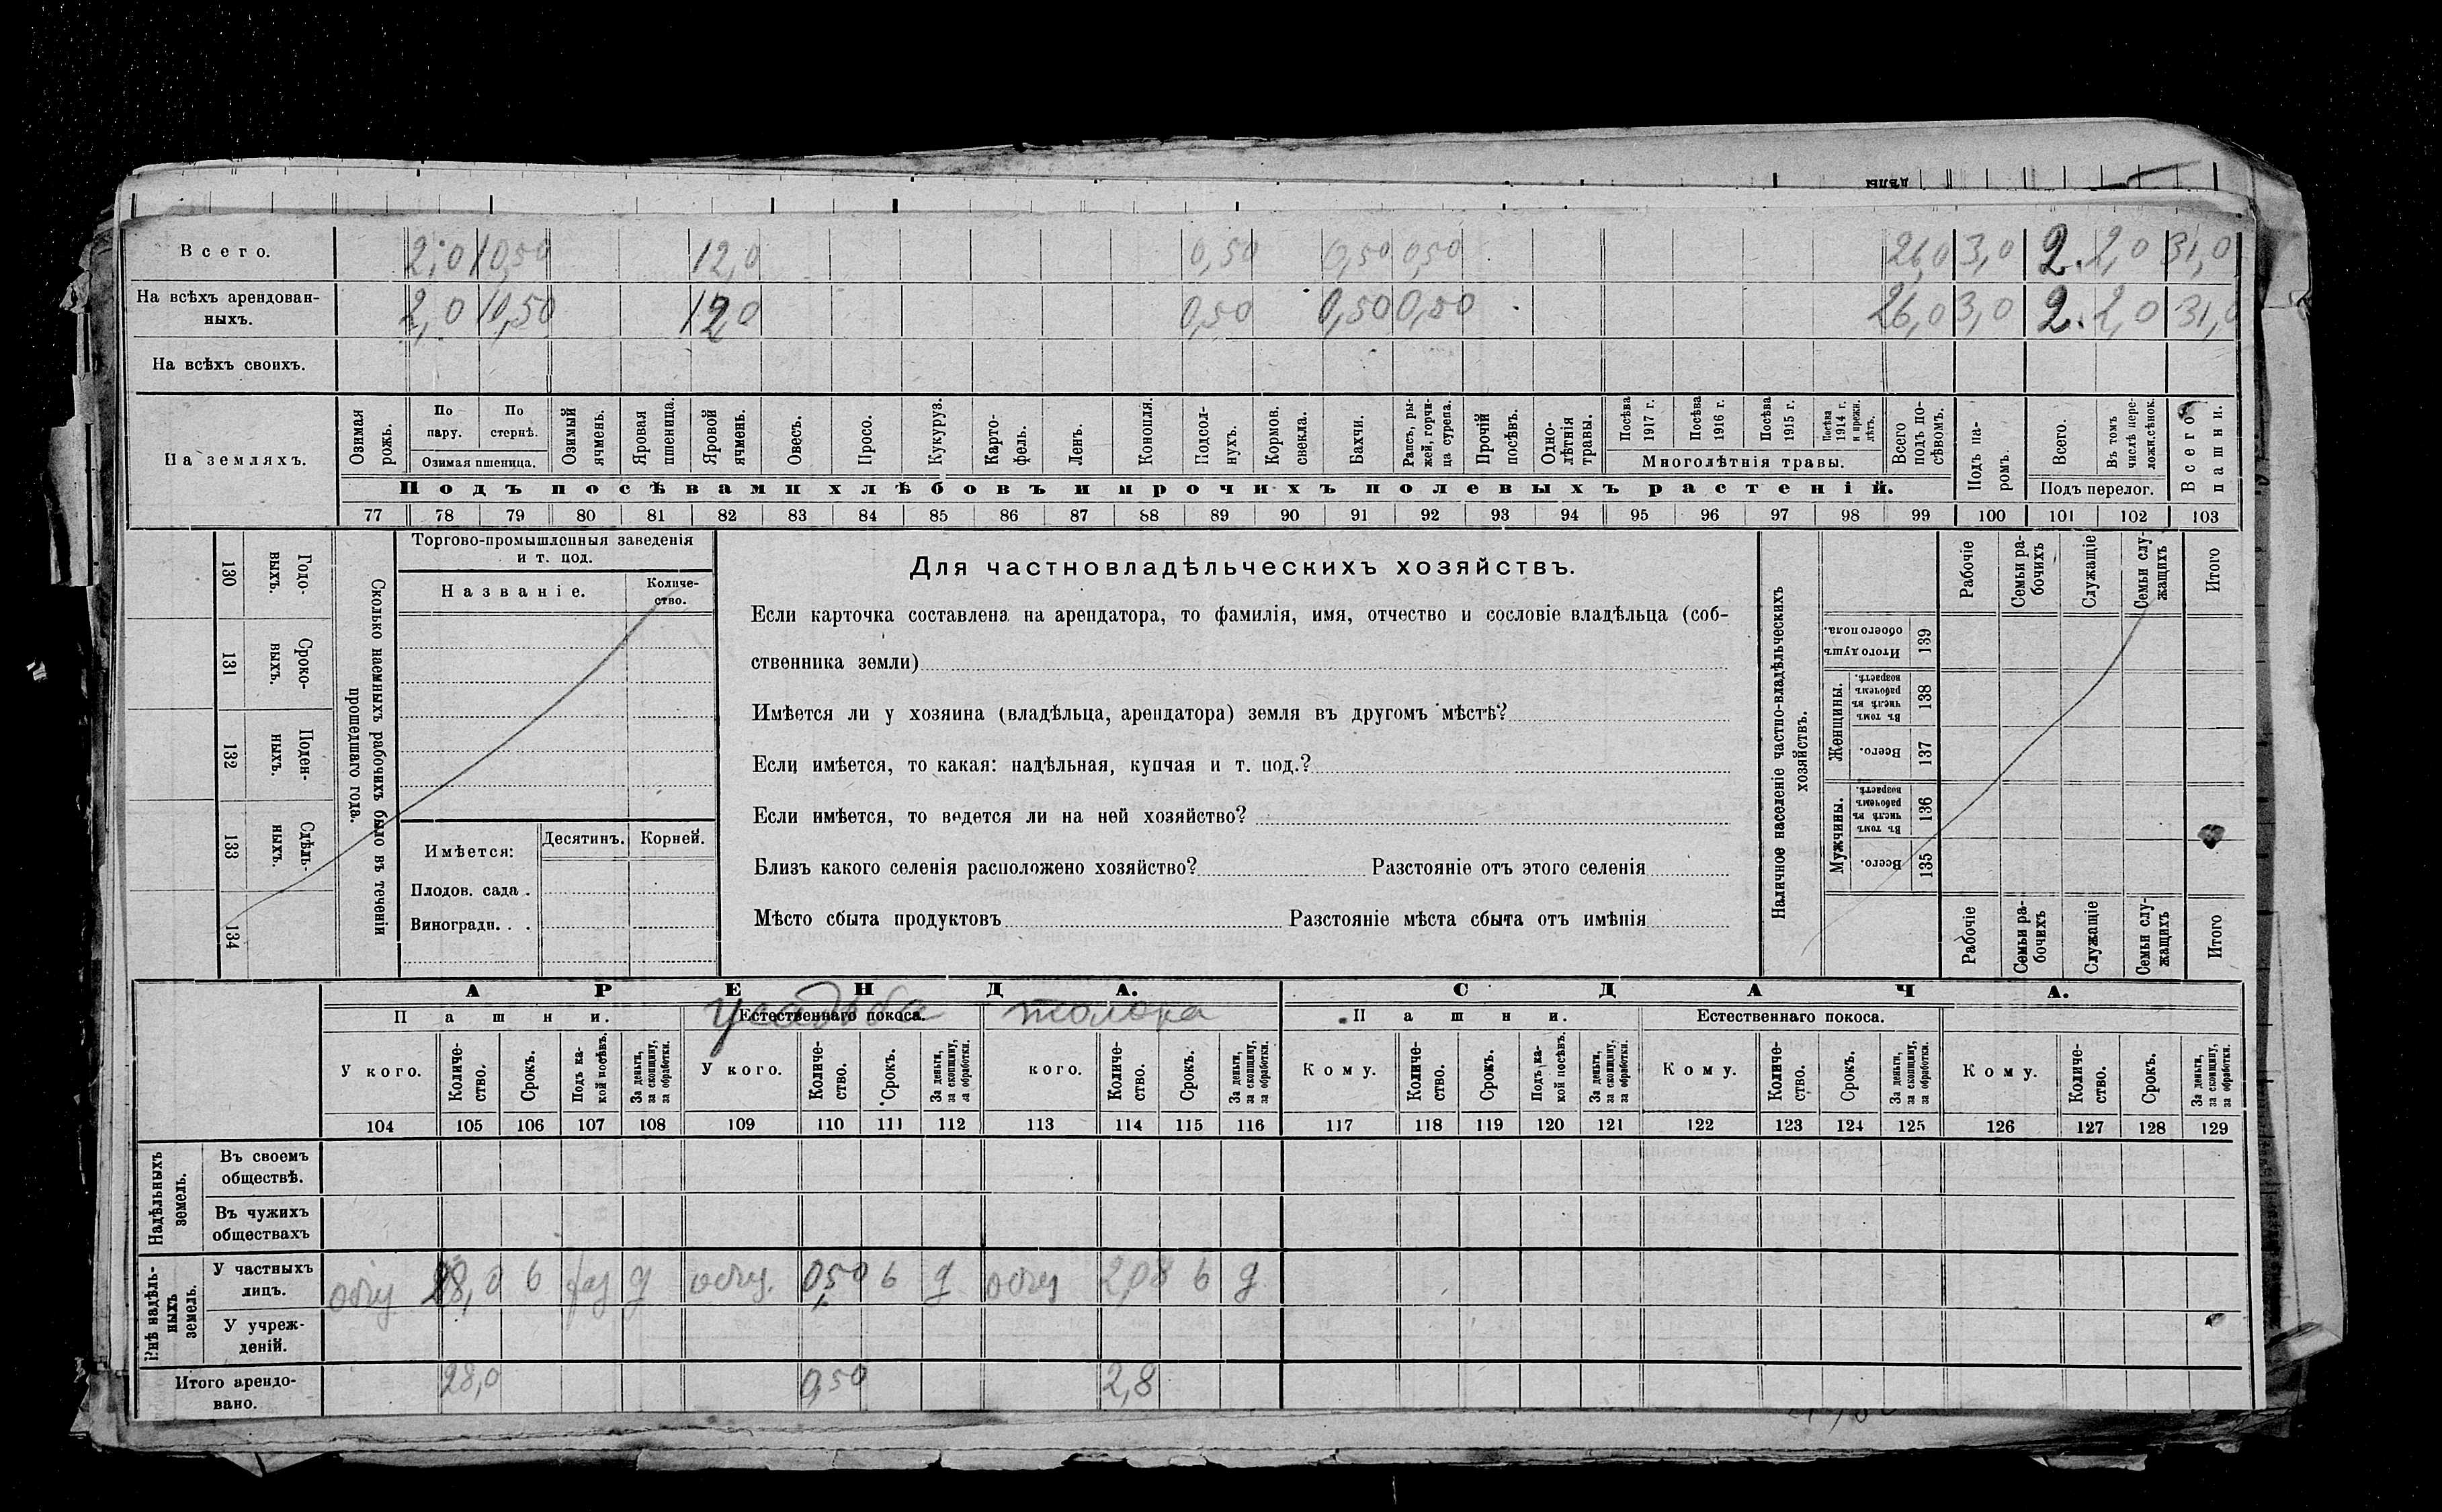 дѣлы
Всего. 2,0 10,50 12,0 0,50 0,50 0,50 26,0 3,0 2. 2,0 31,0
На всѣхъ арендован-
ныхъ. 2,0 10,50 12,0 0,50 0,50 0,50 26,0 3,0 2. 2,0 31,0
На всѣхъ своихъ.
На земляхъ.
Озимая рожь.
По пару.
По стернѣ.
Озимая пшеница.
Озимый ячмень.
Яровая пшеница.
Яровой ячмень.
Овесъ.
Просо.
Кукуруз.
Карто-
фель.
Ленъ.
Конопля.
Подсол-
нухъ.
Кормов. свекла.
Бахчи.
Рапсъ, ры-
жей, горчи-
ца сурепа.
Прочій посѣвъ.
Одно-
лѣтнія травы.
Посѣва 1917 г.
Посѣва 1916 г.
Посѣва 1915 г.
Посѣва 1914 г. и прежн. лѣтъ.
Многолѣтнія травы.
Всего подъ по-
сѣвомъ.
Подъ па-
ромъ.
Всего.
Въ томъ числѣ пере-
ложн.сѣнок.
Подъ перелог.
Всего пашни.
Подъ посѣвами хлѣбовъ и прочихъ полевыхъ растеній.
77 78 79 80 81 82 83 84 85 86 87 88 89 90 91 92 93 94 95 96 97 98 99 100 101 102 103
130 Годо-
выхъ.
131 Сроко-
выхъ.
132 Поден-
ныхъ.
133 Сдѣль-
ныхъ.
134
Сколько наемныхъ рабочихъ было въ теченіи
прошедшаго года.
Торгово-промышленныя заведенія
и т. под.
Названіе.
Количе-
ство.
Имѣется:
Десятинъ.
Корней.
Плодов. сада .
Виноградн. . .
Для частновладѣльческихъ хозяйствъ.
Если карточка составлена на арендатора, то фамилія, имя, отчество и сословіе владѣльца (соб-
ственника земли)
Имѣется ли у хозяина (владѣльца, арендатора) земля въ другомъ мѣстѣ?
Если имѣется, то какая: надѣльная, купчая и т. под.?
Если имѣется, то ведется ли на ней хозяйство?
Близъ какого селенія расположено хозяйство? Разстояніе отъ этого селенія
Мѣсто сбыта продуктовъ Разстояніе мѣста сбыта отъ имѣнія
Наличное населеніе частно-владѣльческихъ
хозяйствъ.
Рабочіе
Семьи ра-
бочихъ
Служащіе
Семьи слу-
жащихъ
Итого
Итого душъ обоего пола. 139
Женщины.
Въ томъ числѣ въ рабочемъ возрастѣ. 138
Всего. 137
Мужчины.
Въ томъ числѣ въ рабочемъ возрастѣ. 136
Всего. 135
Рабочіе
Семьи ра-
бочихъ
Служащіе
Семьи слу-
жащихъ
Итого
АРЕНДА.
СДАЧА.
Пашни.
Естественнаго покоса.
усадьба
толока
Пашни.
Естественнаго покоса.
У кого.
Количе-
ство.
Срокъ.
Подъ ка-
кой посѣвъ.
За деньги,
за скопщину,
за обработки.
У кого.
Количе-
ство.
Срокъ.
За деньги,
за скопщину,
за обработки.
кого.
Количе-
ство.
Срокъ.
За деньги,
за скопщину,
за обработки.
Кому.
Количе-
ство.
Срокъ.
Подъ ка-
кой посѣвъ.
За деньги,
за скопщину,
за обработки.
Кому.
Количе-
ство.
Срокъ.
За деньги,
за скопщину,
за обработки.
Кому.
Количе-
ство.
Срокъ.
За деньги,
за скопщину,
за обработки.
104 105 106 107 108 109 110 111 112 113 114 115 116 117 118 119 120 121 122 123 124 125 126 127 128 129
Надѣльныхъ
земель.
Въ своемъ
обществѣ.
Въ чужихъ
обществахъ
Внѣ надѣль-
ныхъ
земель.
У частныхъ
лицъ. 28,0 6 д 0,50 6 д 2,08 6 д
У учреж-
деній.
Итого арендо-
вано. 28,0 0,50 2,8